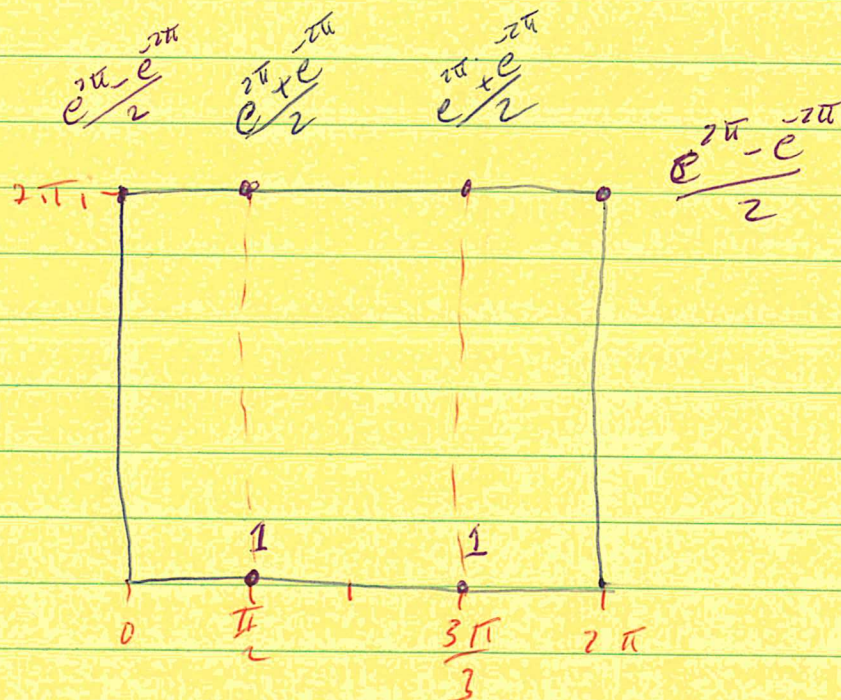 e^2π - e^-2π / 2
e^2π + e^-2π / 2
e^2π + e^-2π / 2
e^2π - e^-2π / 2
2πi
1
1
0
π/2
3π/3
2π